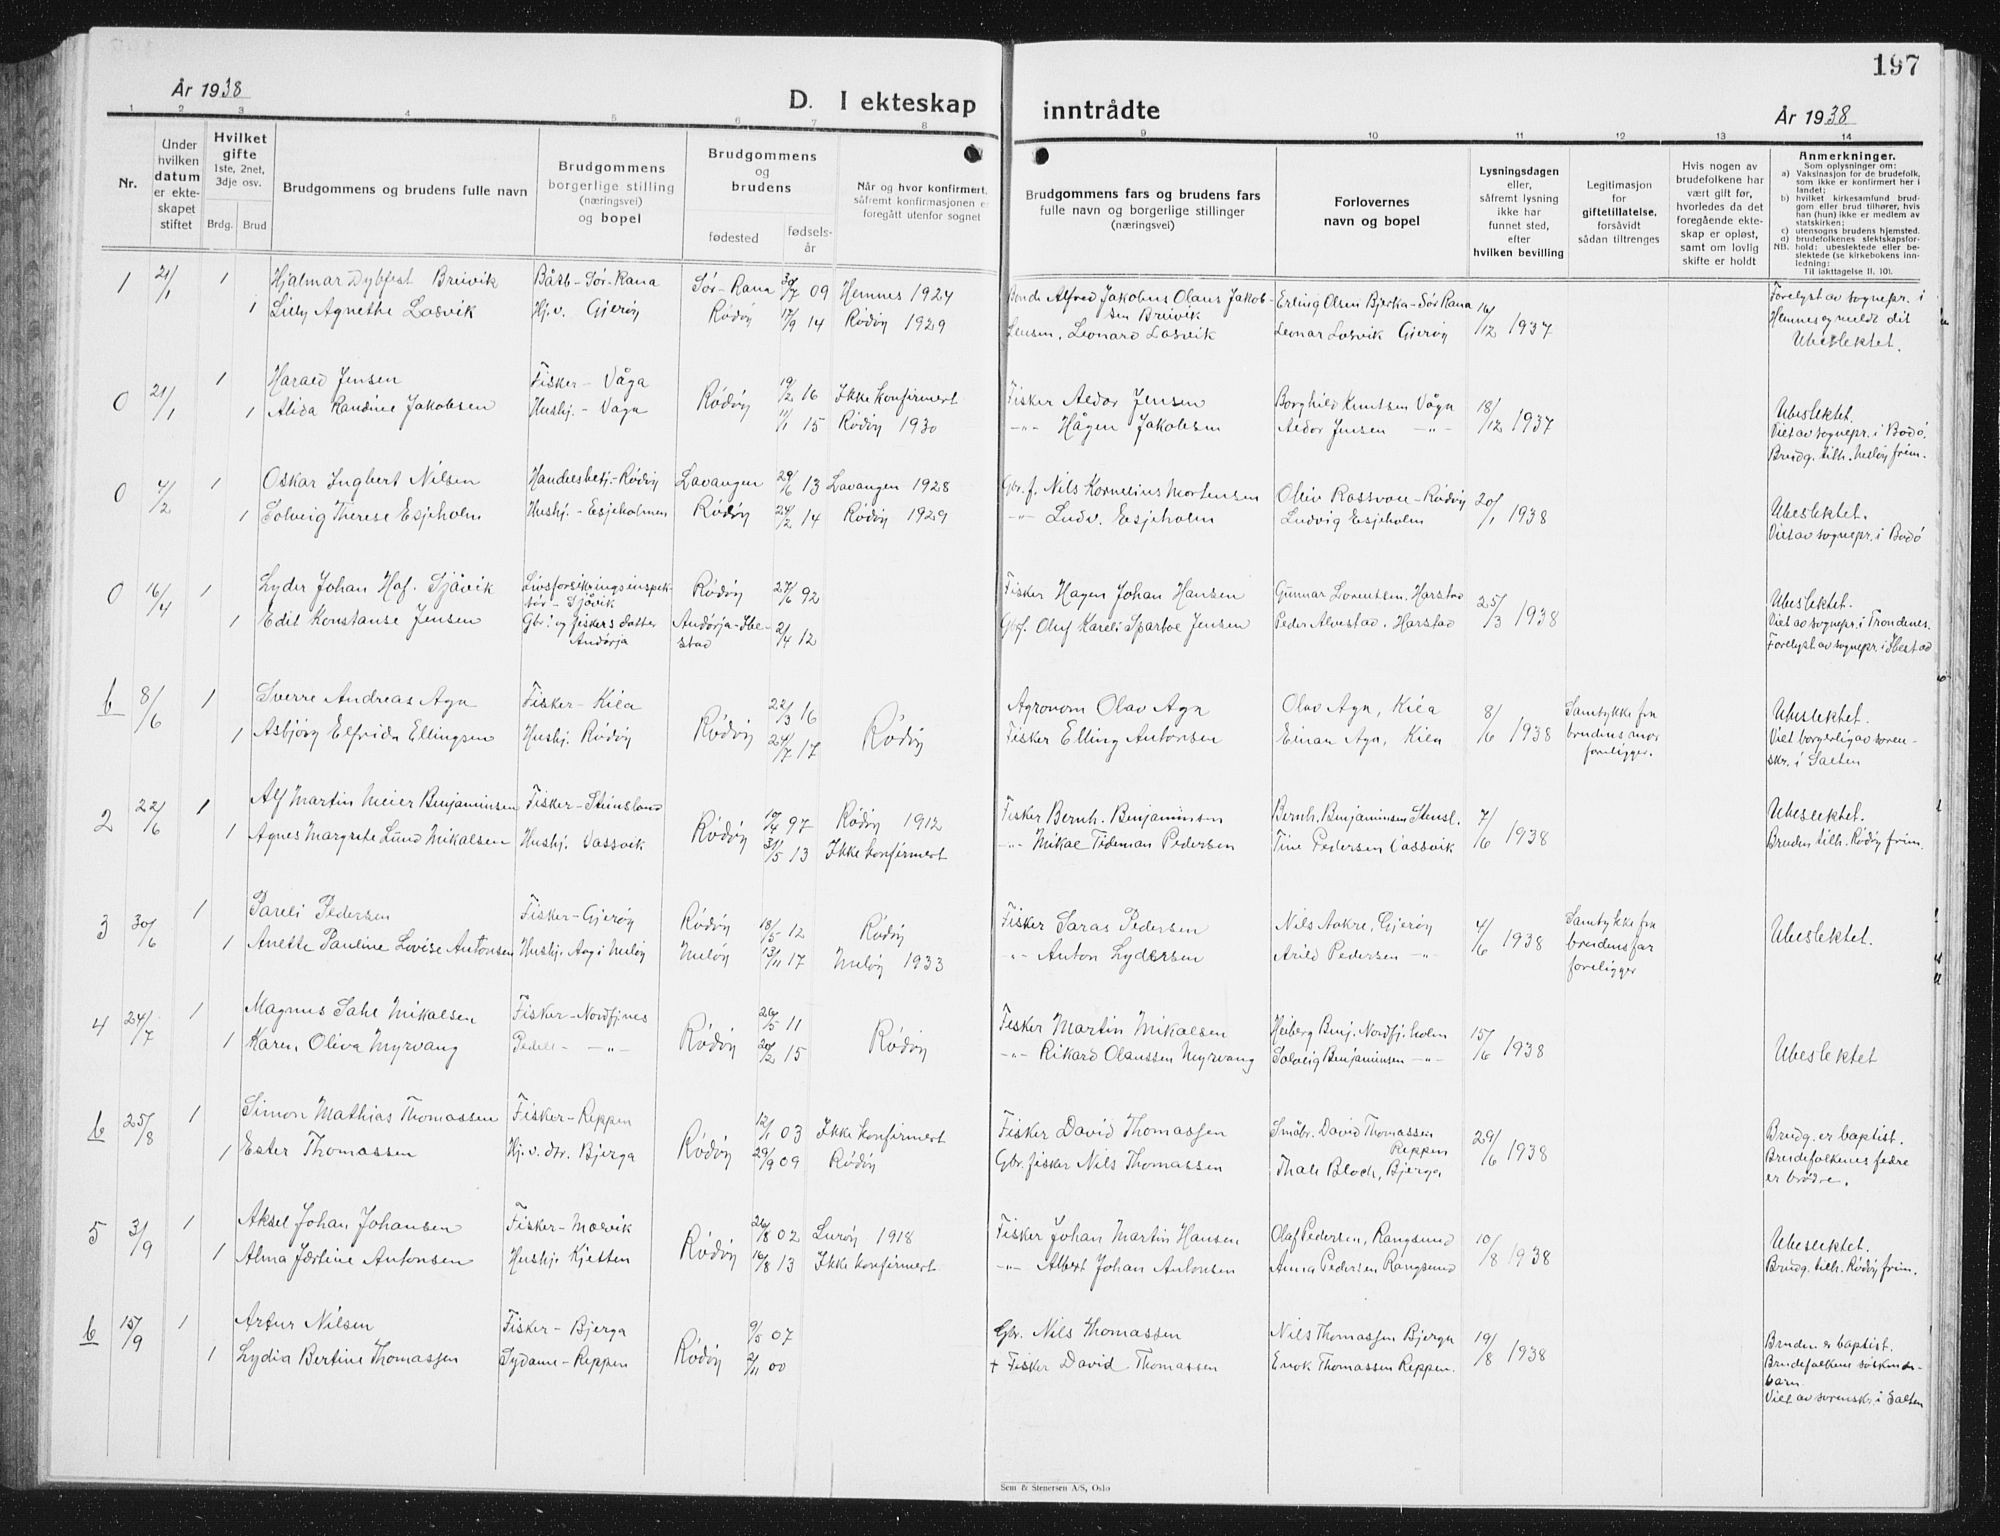 197
År 1938
D. I ekteskap inntrådte
År 1938
1 2 3 4 5 6 7 8 9 10 11 12 13 14
Nr.
Under hvilken datum er ekteskapet stiftet
Hvilket gifte 1ste, 2net, 3dje osv.
Brdg. Brud
Brudgommens og brudens fulle navn
Brudgommens borgerlige stilling (næringsvei) og bopel
Brudgommens og brudens
fødested
fødselsår
Når og hvor konfirmert, såfremt konfirmasjonen er foregått utenfor sognet
Brudgommens fars og brudens fars fulle navn og borgerlige stillinger (næringsvei)
Forlovernes navn og bopel
Lysningsdagen eller, såfremt lysning ikke har funnet sted, efter hvilken bevilling
Legitimasjon for giftetillatelse, forsåvidt sådan tiltrenges
Hvis nogen av brudefolkene har vært gift før, hvorledes da det foregående ekteskap er opløst, samt om lovlig skifte er holdt
Anmerkninger.
Som oplysninger om:
a) Vaksinasjon for de brudefolk, som ikke er konfirmert her i landet;
b) hvilket kirkesamfund brudgom eller brud tilhører, hvis han (hun) ikke er medlem av statskirken;
c) utensogns brudens hjemsted.
d) brudefolkenes slektskapsforhold: ubeslektede eller beslektede (se kirkebokens innledning:
NB.
Til iakttagelse II, 10).
1 21/1 1 Hjalmar Dybfest Breivik Båtb-Sør-Rana Sør-Rana 30/7 09 Hemnes 1924 Bonde Alfred Jakobus Olaus Jakobsen Breivik Erling Olsen Bjerka-Sør Rana 16/12 1937 Forelyst av sognepr. i Hemnes og meldt dit
1 Lilly Agnethe Losvik Hj.v. Gjerøy Rødøy 17/9 14 Rødøy 1929 Lensm. Leonard Losvik Leonar Losvik Gjerøy Ubeslektet.
0 21/1 1 Harald Jensen Fisker - Våga Rødøy 19/2 16 Ikke konfirmert Fisker Aldor Jensen Borghild Knutsen Våga 18/12 1937 Ubeslektet.
1 Alida Randine Jakobsen Hushj. - Våga 11/1 15 Rødøy 1930 -"- Hågen Jakobsen Aldor Jensen -"- Viet av sognepr. i Bodø.
Brudg. tilh. Meløy frim.
0 4/2 1 Oskar Ingbert Nilsen Handelsbetj.-Rødøy Lavangen 29/6 13 Lavangen 1928 Gbr. f. Nils Kornelius Mortensen Oliv Rossvoll-Rødøy 20/1 1938 Ubeslektet.
1 Solveig Therese Esjeholm Hushj. - Esjeholmen Rødøy 24/2 14 Rødøy 1929 -"- Ludv. Esjeholm Ludvig Esjeholm Viet av sognepr. i Bodø
0 16/4 1 Lyder Johan Haf. Sjåvik Livsforsikringsinspektør - Sjåvik Rødøy 27/6 92 Fisker Hagen Johan Hansen Gunnar Lorentsen. Harstad 25/3 1938 Ubeslektet.
1 Edit Konstanse Jensen Gbr: og fiskers datter Andørja Andørja-Ibestad 21/4 12 Gbf. Oluf Kareli Sparboe Jensen Peder Alvestad. Harstad Viet av sognepr. i Trondenes.
Forelyst av sognepr. i Ibestad
b 8/6 1 Sverre Andreas Aga Fisker - Kila Rødøy 22/3 16 Rødøy Agronom Olav Aga Olav Aga, Kila 8/6 1938 Samtykke fra brudens mor foreligger. Ubeslektet.
1 Asbjørg Elfrida Ellingsen Hushj. Rødøy 24/7 17 Fisker Elling Antonsen Einar Aga, Kila Viet borgerlig av sorenskr. i Salten
2 22/6 1 Alf Martin Meier Benjaminsen Fisker - Stensland Rødøy 10/4 97 Rødøy 1912 Fisker Bernh. Benjaminsen Bernh. Benjaminsen Stensl. 7/6 1938 Ubeslektet.
1 Agnes Margrete Lund Mikalsen Hushj. Vassvik 31/5 13 Ikke konfirmert -"- Mikal Tideman Pedersen Tine Pedersen Vassvik Bruden tilh. Rødøy frim.
3 30/6 1 Pareli Pedersen Fisker - Gjerøy Rødøy 18/5 12 Rødøy Fisker Saras Pedersen Nils Aakre, Gjerøy 4/6 1938 Samtykke fra brudens far foreligger Ubeslektet.
1 Anette Pauline Lovise Antonsen Hushj. Aag i Meløy Meløy 13/11 17 Meløy 1933 -"- Anton Lydersen Arild Pedersen -"-
4 24/7 1 Magnus Sahl Mikalsen Fisker - Nordfjnes Rødøy 26/5 11 Rødøy Fisker Martin Mikalsen Heiberg Benj. Nordfj.holm 15/6 1938 Ubeslektet
1 Karen Oliva Myrvang Pedell - -"- 20/2 15 -"- Rikard Olaussen Myrvang Solveig Benjaminsen -"-
b 25/8 1 Simon Mathias Thomassen Fisker - Reppen Rødøy 12/1 03 Ikke konfirmert Fisker David Thomassen Småbr. David Thomassen Reppen 29/6 1938 Brudg. er baptist.
1 Ester Thomassen Hj.v. dtr. Bjerga 29/9 09 Rødøy Gbr. fisker Nils Thomassen Thale Bloch, Bjerga Brudefolkenes fedre er brødre.
5 3/9 1 Aksel Johan Johansen Fisker - Morvik Rødøy 26/8 02 Lurøy 1918 Fisker Johan Martin Hansen Olaf Pedersen, Rangsund 10/8 1938 Ubeslektet.
1 Alma Jærtine Antonsen Hushj. Kjetten 16/8 13 Ikke konfirmert. -"- Albert Johan Antonsen Anna Pedersen Rangsund Brudg. tilh. Rødøy frim.
b 15/9 1 Artur Nilsen Fisker - Bjerga Rødøy 9/5 07 Gbr. Nils Thomassen Nils Thomassen Bjerga 19/8 1938 Bruden er baptist.
1 Lydia Bertine Thomassen Sydame - Reppen 2/11 00 + Fisker David Thomassen Enok Thomassen Reppen. Brudefolkene søskenbarn.
Viet av sorenskr. i Salten
Sem & Stenersen A/S, Oslo